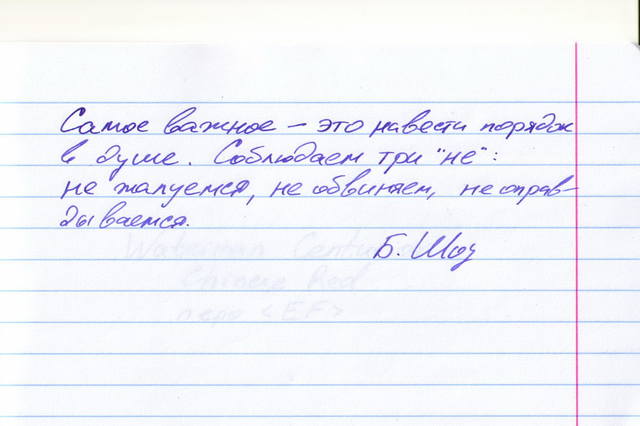 Самое важное – это навести порядок
в душе. Соблюдаем три "не":
не жалуемся, не обвиняем, не оправ-
дываемся.
Б. Шоу
Waterman Centu
Chinese Red
перо <EF>